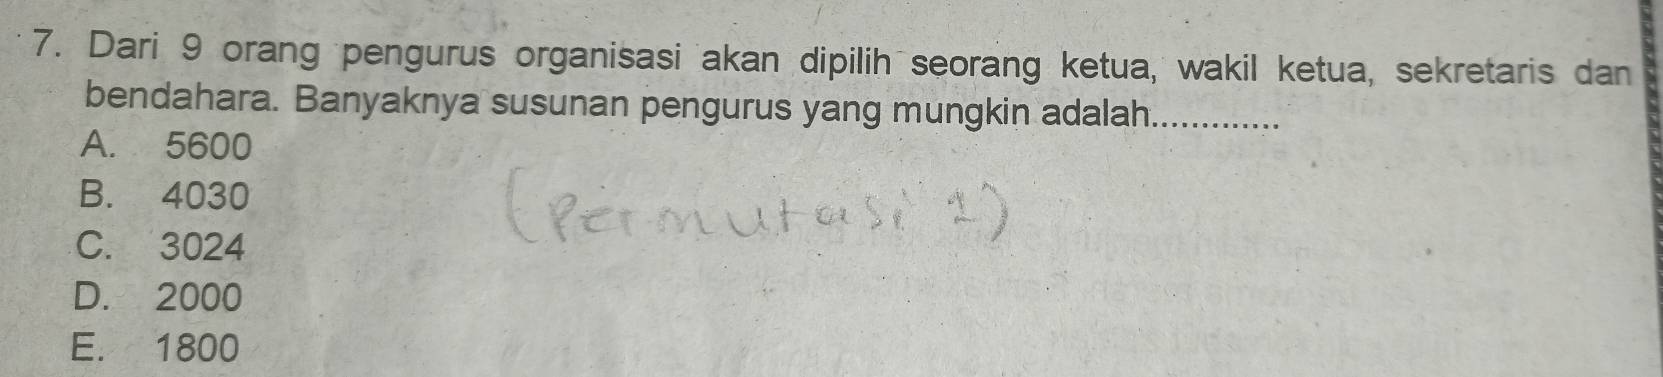 7. Dari 9 orang pengurus organisasi akan dipilih seorang ketua, wakil ketua, sekretaris dan
bendahara. Banyaknya susunan pengurus yang mungkin adalah.............
A. 5600
B. 4030
C. 3024
D. 2000
E. 1800
(Permutasi 1)